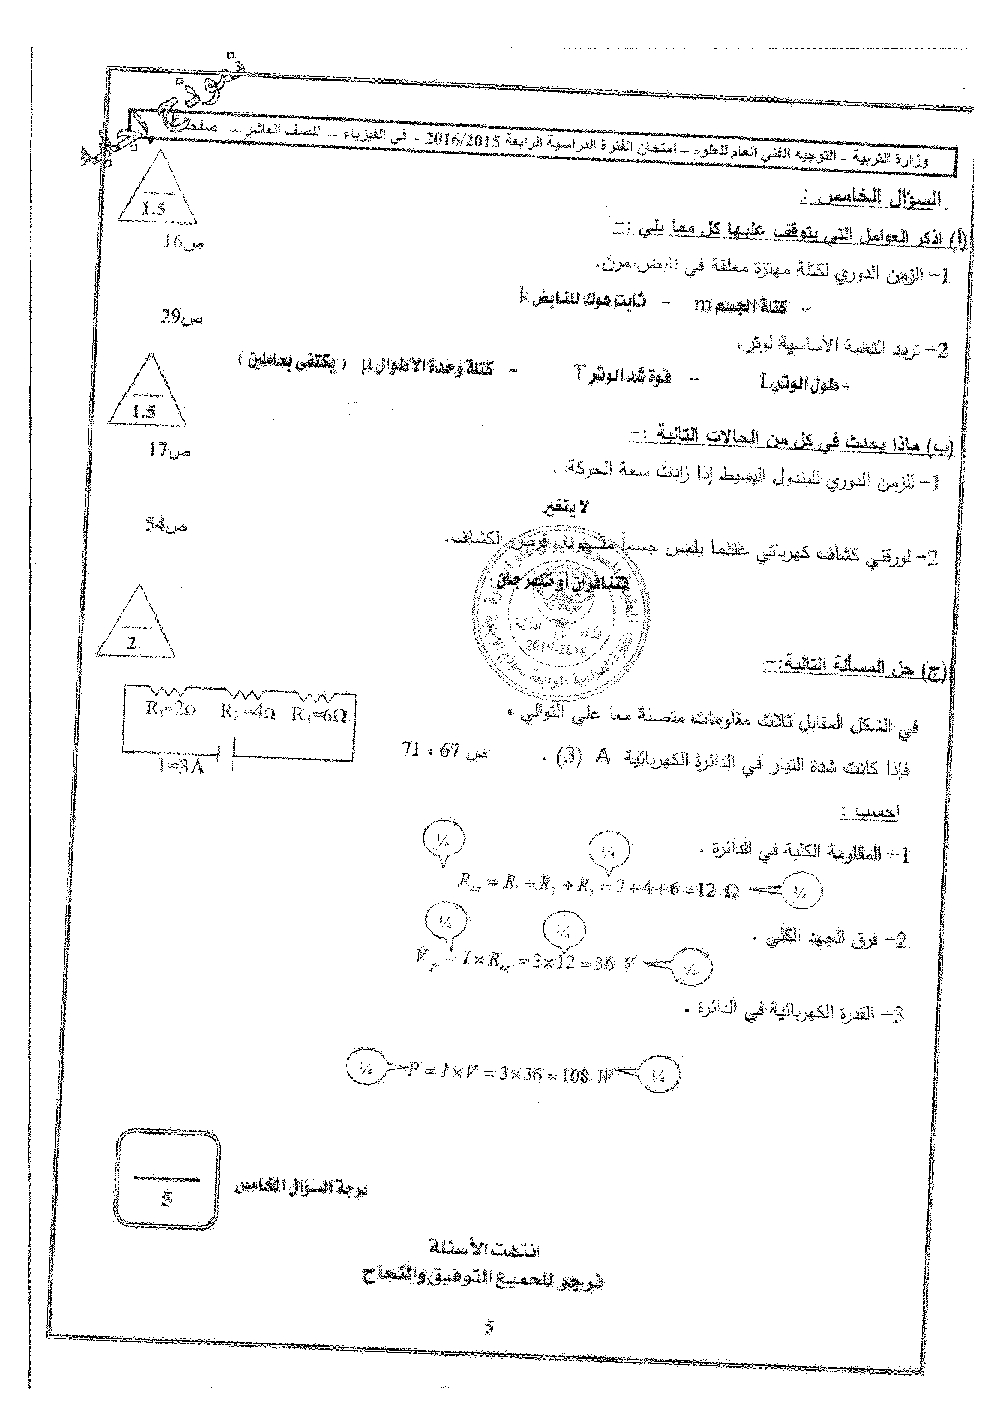 نموذج إجابة
وزارة التربية – التوجيه الفني العام للعلوم – امتحان الفترة الدراسية الرابعة 2016/2015 - في الفيزياء – للصف العاشر – صفحة
السؤال الخامس :
(أ) اذكر العوامل التي يتوقف عليها كل مما يلي :-
1.5
ص16
1- الزمن الدوري لكتلة مهتزة معلقة في نابض مرن.
- كتلة الجسم m - ثابت هوك للنابض k
ص29
2- تردد النغمة الأساسية لوتر.
- طول الوتر L - قوة شد الوتر T - كتلة وحدة الأطوال μ ( يكتفى بعاملين )
1.5
(ب) ماذا يحدث في كل من الحالات التالية :-
ص17
1- للزمن الدوري للبندول البسيط إذا زادت سعة الحركة .
لا يتغير
ص54
2- لورقتي كشاف كهربائي عندما يلمس جسماً مشحوناً قرص الكشاف.
تتنافران أو تنفرجان
2
(ج) حل المسألة التالية:-
R₁=2Ω R₂=4Ω R₃=6Ω
I=3A
في الشكل المقابل ثلاث مقاومات متصلة معا على التوالي .
فإذا كانت شدة التيار في الدائرة الكهربائية A (3) . ص 67 ، 71
احسب :
1- المقاومة الكلية في الدائرة .
¼ ¼
R_eq = R₁ + R₂ + R₃ = 2+4+6=12 Ω ¼
2- فرق الجهد الكلي .
¼ ¼
V_T = I × R_eq = 3×12 = 36 V ¼
3- القدرة الكهربائية في الدائرة .
¼ P = I×V = 3×36 = 108 W ¼
5
درجة السؤال الخامس
انتهت الأسئلة
نرجو للجميع التوفيق والنجاح
5